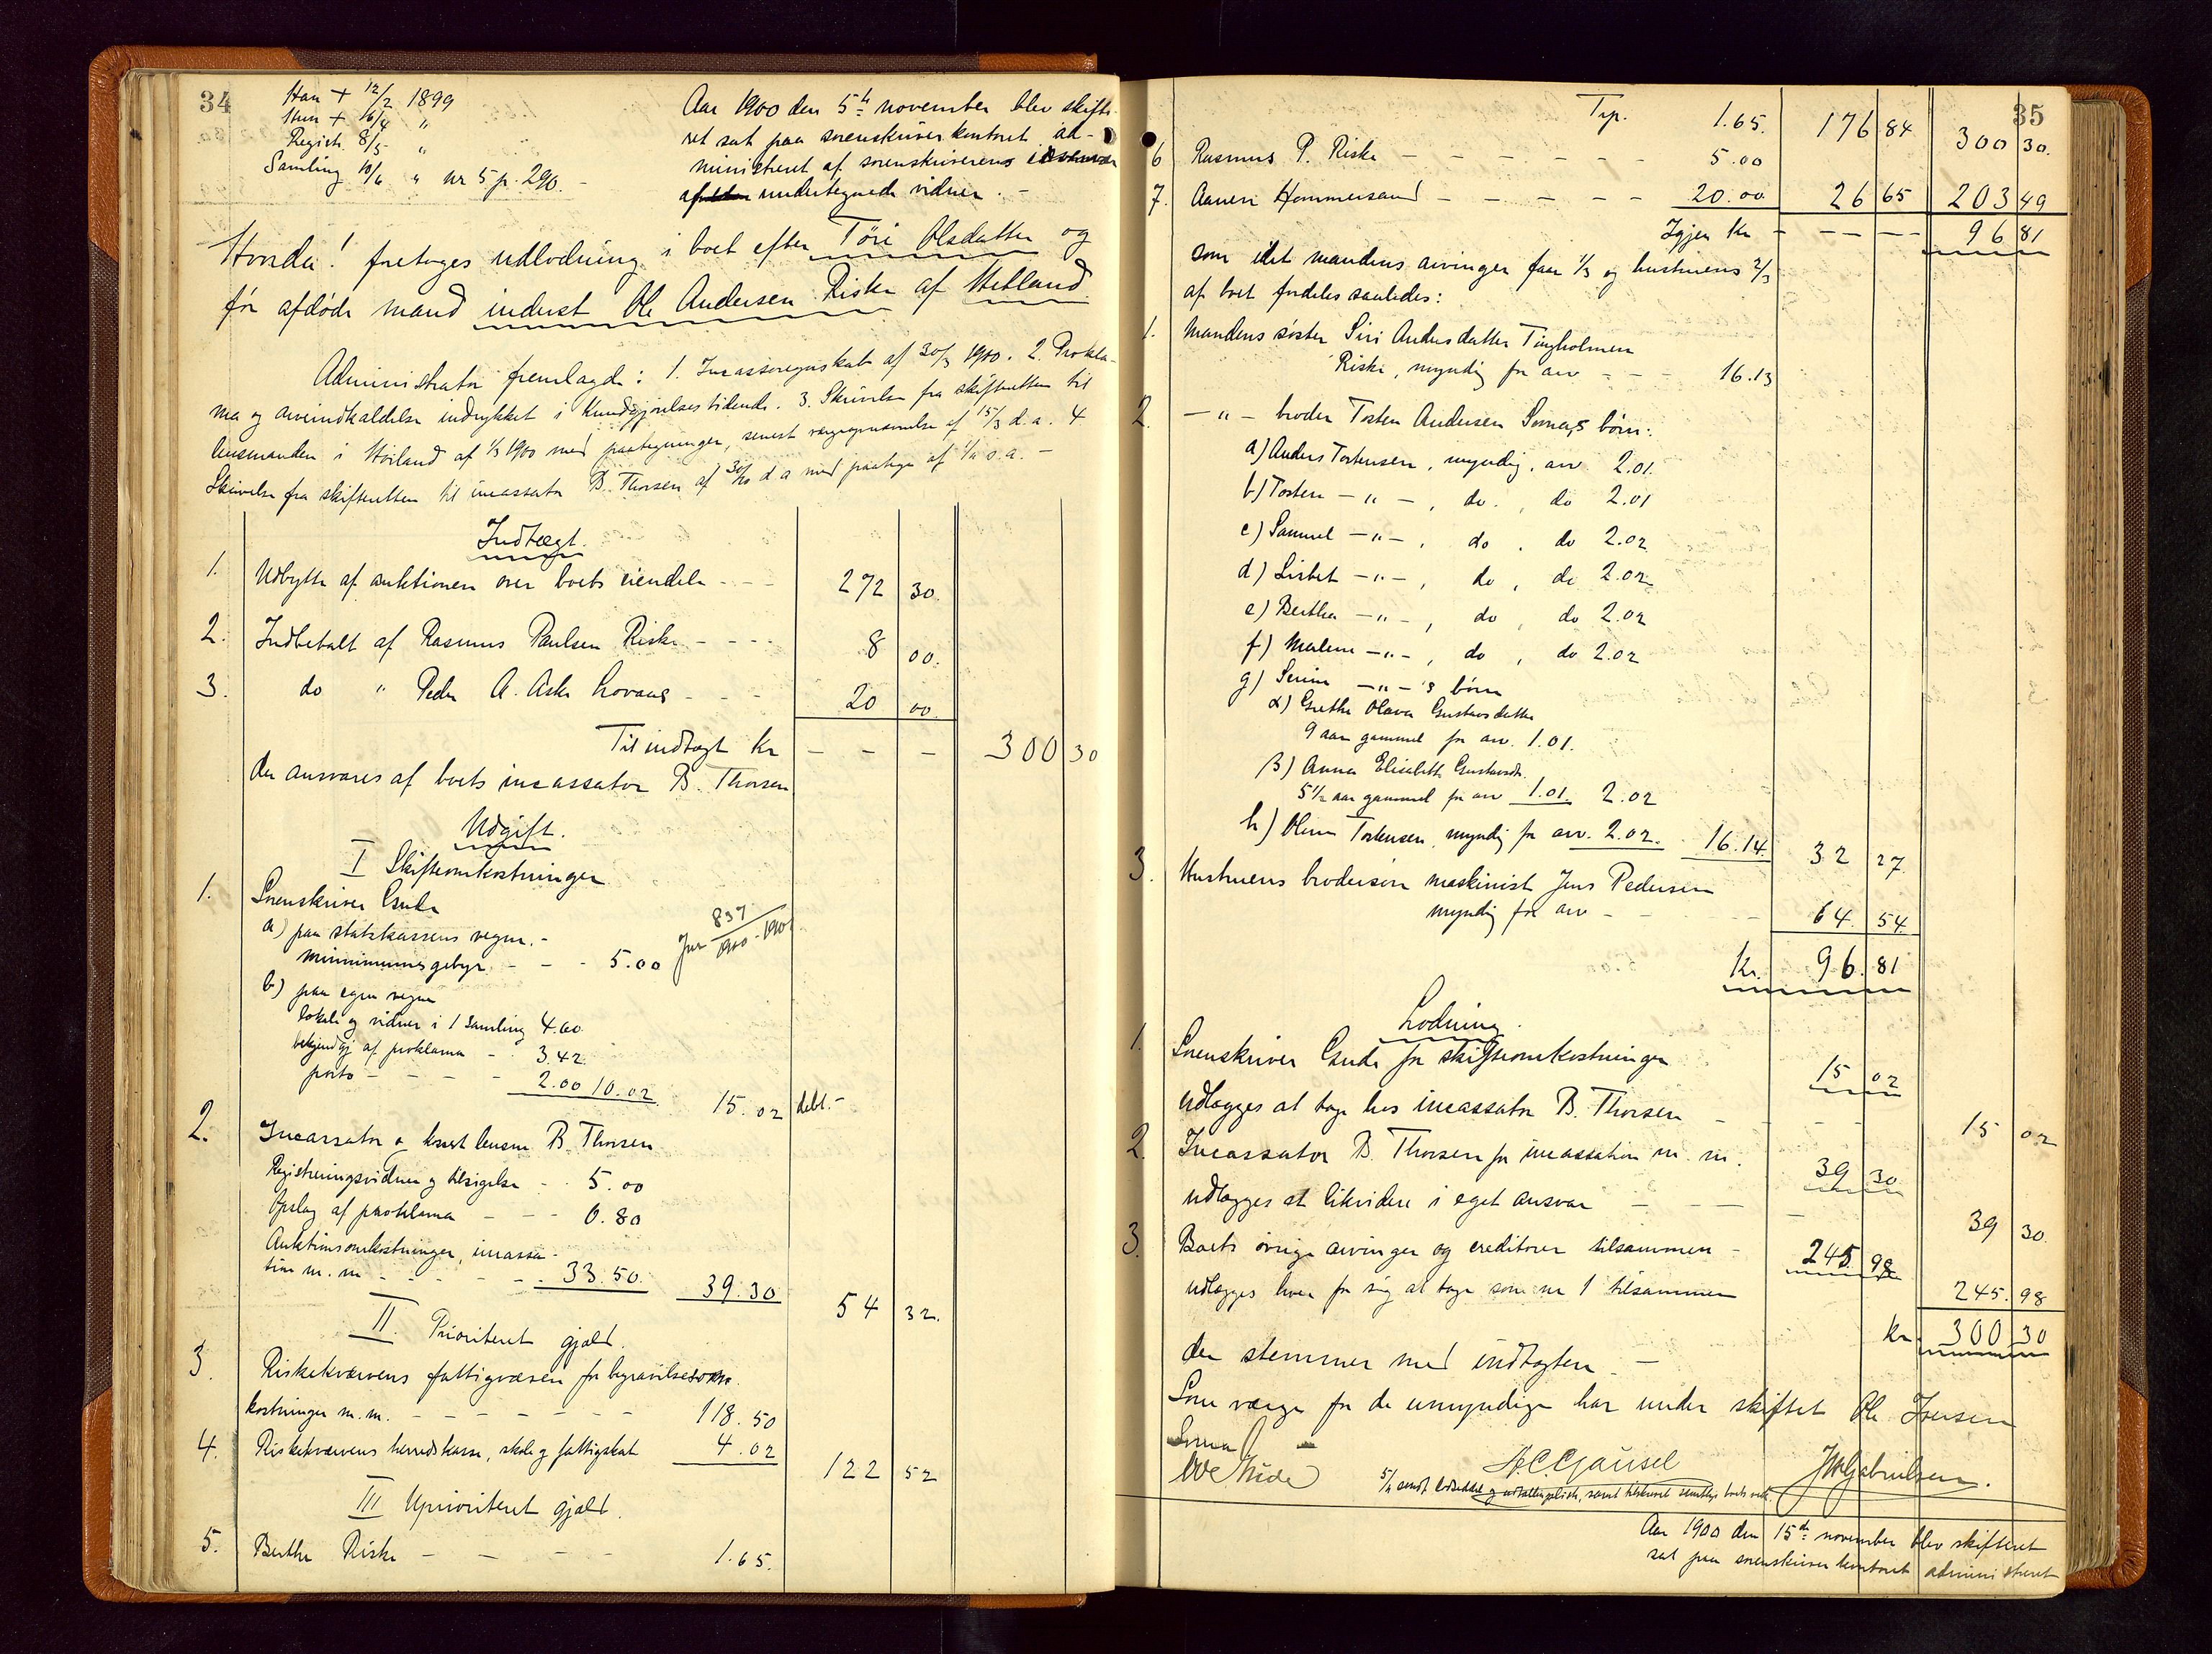 34
Han + 12/2 1899
Hun + 16/4 "
Registr. 8/5 "
Samling 10/6 " nr 5 p. 290. -
Aar 1900 den 5te november blev skifte-
ret sat paa sorenskriverkontoret ad-
ministreret af sorenskriveren
undertegnede vidner. -
Hvorda! foretages udlodning i boet efter Töri Olsdatter og
før afdøde mand inderst Ole Andersen Riske af Hetland
Administrator fremlagde: 1. Incassoregnskab af 30/3 1900. 2. Prokla-
ma og arveindkaldelse indrykket i Kundgjørelsestidende. 3. Skrivelse fra skifteretten til
lensmanden i Høiland af 1/3 1900 med paategninger, senest værgeopnævnelse af 15/3 d. a. 4
Skrivelse fra skifteretten til incassator B. Thorsen af 30/10 d a med paategn af 1/11 s. a. -
Indtægt.
1. Udbytte af auktionen over boets eiendele - - - 272 30.
2. Indbetalt af Rasmus Paulsen Riske - - - - 8 00.
3. do " Peder A. Aske Hovans - - - 20 00.
Til indtægt Kr - - - 300 30
der ansvares af boets incassator B. Thorsen
Udgift.
I Skifteomkostninger
1. Sorenskriver Gude
a) paa statskassens vegne. -
minimumsgebyr - - - 5.00 Jnr 837/1900-1901
b) paa egne vegne
lokale og vidner i 1 samling 4.60
bekjendtgj af proklama - - 3.42
porto - - - - 2.00 10.02 15.02 debt. -
2. Incassator o konst lensm B. Thorsen
Registreringsvidner og tilsigelse - - 5.00
Opslag af proklama - - - 0.80
Auktionsomkostninger, incassa-
tion m. m - - - - - 33.50. 39.30 54 32.
II. Prioriteret gjæld.
3. Riskekværvens fattigvæsen for begravelsesom-
kostninger m. m. - - - - - - 118.50
4. Riskekværvens herredskasse, skole og fattigskat 4.02 122 52
III Uprioriteret gjæld.
5. Berthe Riske - - - - 1.65.
35
Trp. 1.65. 176 84 300 30.
6 Rasmus P. Riske - - - - - - - 5.00
7. Aanen Hommersand - - - - - 20.00 26 65 203 49
Igjen Kr - - - - 96 81
som idet mandens arvinger faar 1/3 og hustruens 2/3
af boet fordeles saaledes:
1. Mandens søster Siri Andersdatter Tingholmen
Riske, myndig for arv - - - 16.13
2. - " - broder Torsten Andersen Somas børn:
a) Anders Torstensen, myndig, arv 2.01.
b) Torsten - " - , do. , do 2.01
c) Samuel - " - , do , do 2.02
d) Lisbet - " - , do , do 2.02
e) Bertha - " - , do , do 2.02
f) Malene - " - , do , do 2.02
g) Serine - " - 's børn
α) Grethe Olava Gustavsdatter
9 aar gammel for arv. 1.01.
β) Anna Elisabeth Gustavsdt.
5 1/2 aar gammel for arv 1.01. 2.02
h) Olene Torstensen, myndig for arv. 2.02. 16.14. 32 27.
3. Hustruens brodersøn maskinist Jens Pedersen
myndig for arv - - - 64. 54.
Kr. 96. 81
Lodning.
1. Sorenskriver Gude for skifteomkostninger 15 02
udlægges at tage hos incassator B. Thorsen - - - - 15 02
2. Incassator B. Thorsen for incassation m. m. 39 30
udlægges at likvidere i eget ansvar - - - - 39 30.
3. Boets øvrige arvinger og creditorer tilsammen - 245 98
udlægges hver for sig at tage som nr 1 tilsammen 245. 98
Kr. 300 30
der stemmer med indtægten. -
Som værge for de umyndige har under skiftet Ole Iversen
Soma
Ove Gude A. C. Gausel J W Gabrielsen.
5/11 sendt lodseddel og udskrift
Aar 1900 den 15de november blev skifteret
sat paa sorenskriverkontoret administreret